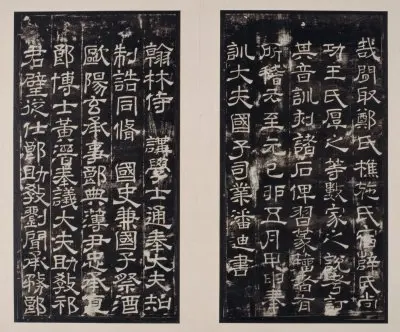 哉間取鄭氏樵施氏宿薛氏尚
功王氏厚之等數家之說考訂
其音訓刻諸石俾習篆籀者有
所稽云至元己卯五月甲申奉
訓大夫國子司業潘迪書
翰林侍 講學士通奉大夫知
制誥同脩 國史兼國子祭酒
歐陽玄承事郎典簿尹忠承直
郎博士黃溍奉議大夫助敎祁
君璧從仕郎助敎劉聞承務郎